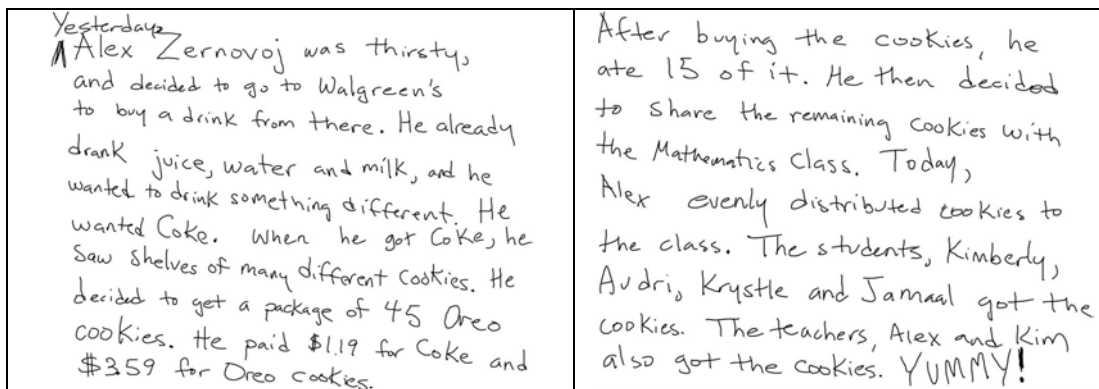 Yesterday,
Alex Zernovoj was thirsty,
and decided to go to Walgreen's
to buy a drink from there. He already
drank juice, water and milk, and he
wanted to drink something different. He
wanted Coke. When he got Coke, he
saw shelves of many different cookies. He
decided to get a package of 45 Oreo
cookies. He paid $1.19 for Coke and
$3.59 for Oreo cookies.
After buying the cookies, he
ate 15 of it. He then decided
to share the remaining cookies with
the Mathematics Class. Today,
Alex evenly distributed cookies to
the class. The students, Kimberly,
Audri, Krystle and Jamaal got the
cookies. The teachers, Alex and Kim
also got the cookies. YUMMY!